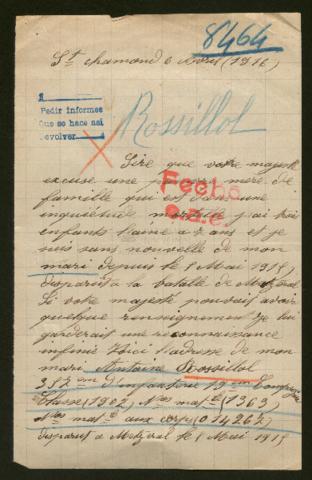 8464
St chamond 6 Avril (1916)
1
Pedir informes
Que se hace asi
devolver
Rossillol
Sire que votre majesté
excuse une pauvre mère de
famille qui est dans une
inquiétude mortelle j'ai trois
enfants l'ainé a 7 ans et je
suis sans nouvelle de mon
mari depuis le 1 Mai 1915
disparut a la bataille de Metzeral
Si votre majesté pouvait avoir
quelque renseignement je lui
garderait une reconnaissance
infinie Voici l'adresse de mon
mari Antoine Rossillol
357 em d'infanterie 19 em Compagnie
Classe (1902) Nos mat le (1363)
Nos mat le aux corps (014267)
disparut a Metzeral le 1 Mai 1915
Fecha